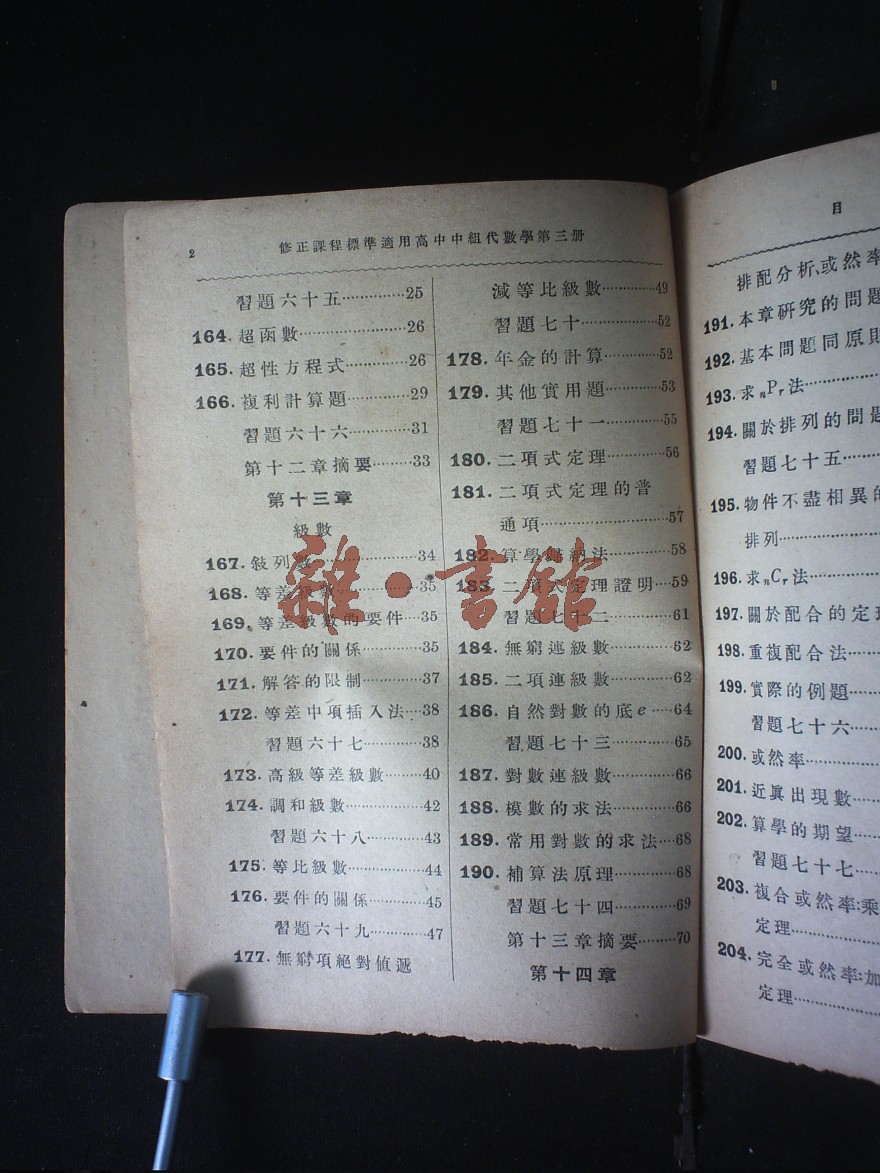 2
修正課程標準適用高中中組代數學第三册
習題六十五…………25
164. 超函數…………26
165. 超性方程式…………26
166. 複利計算題…………29
習題六十六…………31
第十二章摘要………33
第十三章
級數
167. 敍列數…………34
168. 等差級數…………35
169. 等差級數的要件…35
170. 要件的關係…………35
171. 解答的限制…………37
172. 等差中項插入法…38
習題六十七…………38
173. 高級等差級數………40
174. 調和級數…………42
習題六十八…………43
175. 等比級數…………44
176. 要件的關係…………45
習題六十九…………47
177. 無窮項絕對值遞
減等比級數…………49
習題七十…………52
178. 年金的計算…………52
179. 其他實用題…………53
習題七十一…………55
180. 二項式定理…………56
181. 二項式定理的普
通項…………57
182. 算學歸納法…………58
183. 二項式定理證明…59
習題七十二…………61
184. 無窮連級數…………62
185. 二項連級數…………62
186. 自然對數的底e…64
習題七十三…………65
187. 對數連級數…………66
188. 模數的求法…………66
189. 常用對數的求法…68
190. 補算法原理…………68
習題七十四…………69
第十三章摘要………70
第十四章
目
排配分析、或然率
191. 本章研究的問題
192. 基本問題同原則
193. 求nPr法…………
194. 關於排列的問題
習題七十五…………
195. 物件不盡相異的
排列…………
196. 求nCr法…………
197. 關於配合的定
198. 重複配合法…………
199. 實際的例題…………
習題七十六…………
200. 或然率…………
201. 近眞出現數…………
202. 算學的期望…………
習題七十七…………
203. 複合或然率:乘
定理…………
204. 完全或然率:加
定理…………
雜·書館